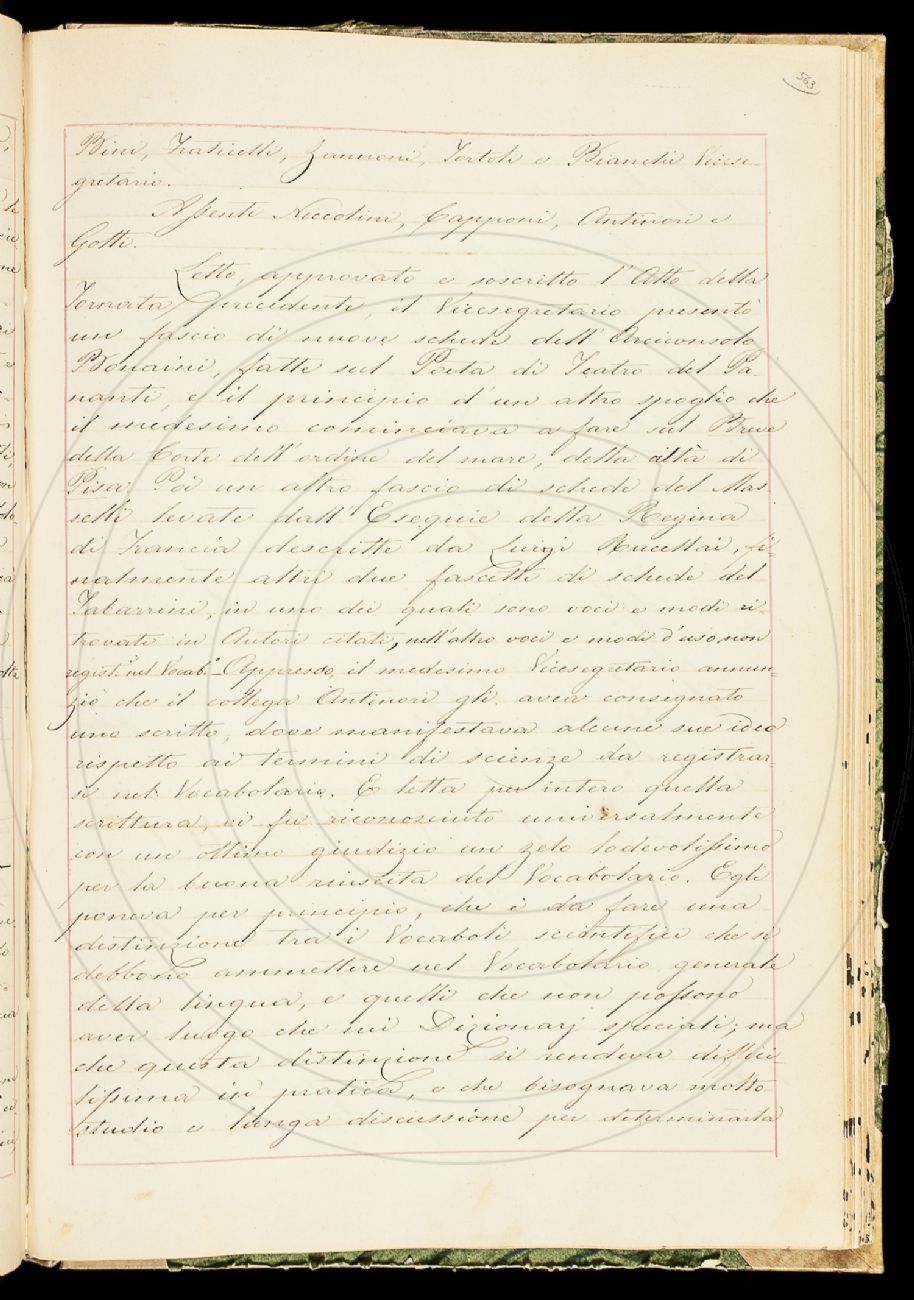 563
Bini, Fraticelli, Zannoni, Tortoli e Bianchi Vicese-
gretario.
Assenti Niccolini, Capponi, Antinori e
Gotti.
Letto, approvato e soscritto l'Atto della
Tornata precedente, il Vicesegretario presentò
un fascio di nuove schede dell'Arciconsolo
Bonaini, fatte sul Poeta di Teatro del Pa-
nanti, e il principio d'un altro spoglio che
il medesimo cominciava a fare sul Breve
della Corte dell'ordine del mare, della città di
Pisa. Poi un altro fascio di schede del Mas
selli levate dall'Esequie della Regina
di Francia descritte da Luigi Rucellai, fi-
nalmente altri due fascetti di schede del
Tabarrini, in uno dei quali sono voci e modi ri-
trovati in Autori citati, nell'altro voci e modi d'uso, non
regist.ti nel Vocab.o - Appresso, il medesimo Vicesegretario annun-
ziò che il collega Antinori gli avea consegnato
uno scritto, dove manifestava alcune sue idee
rispetto ai termini di scienze da registrar-
si nel Vocabolario. E letta per intero quella
scrittura, vi fu riconosciuto universalmente
con un ottimo giudizio un zelo lodevolissimo
per la buona riuscita del Vocabolario. Egli
poneva per principio, che è da fare una
distinzione tra i Vocaboli scientifici che si
debbono ammettere nel Vocabolario generale
della lingua, e quelli che non possono
aver luogo che nei Dizionarj speciali; ma
che questa distinzione si rendeva diffici-
lissima in pratica, e che bisognava molto
studio e lunga discussione per determinarla